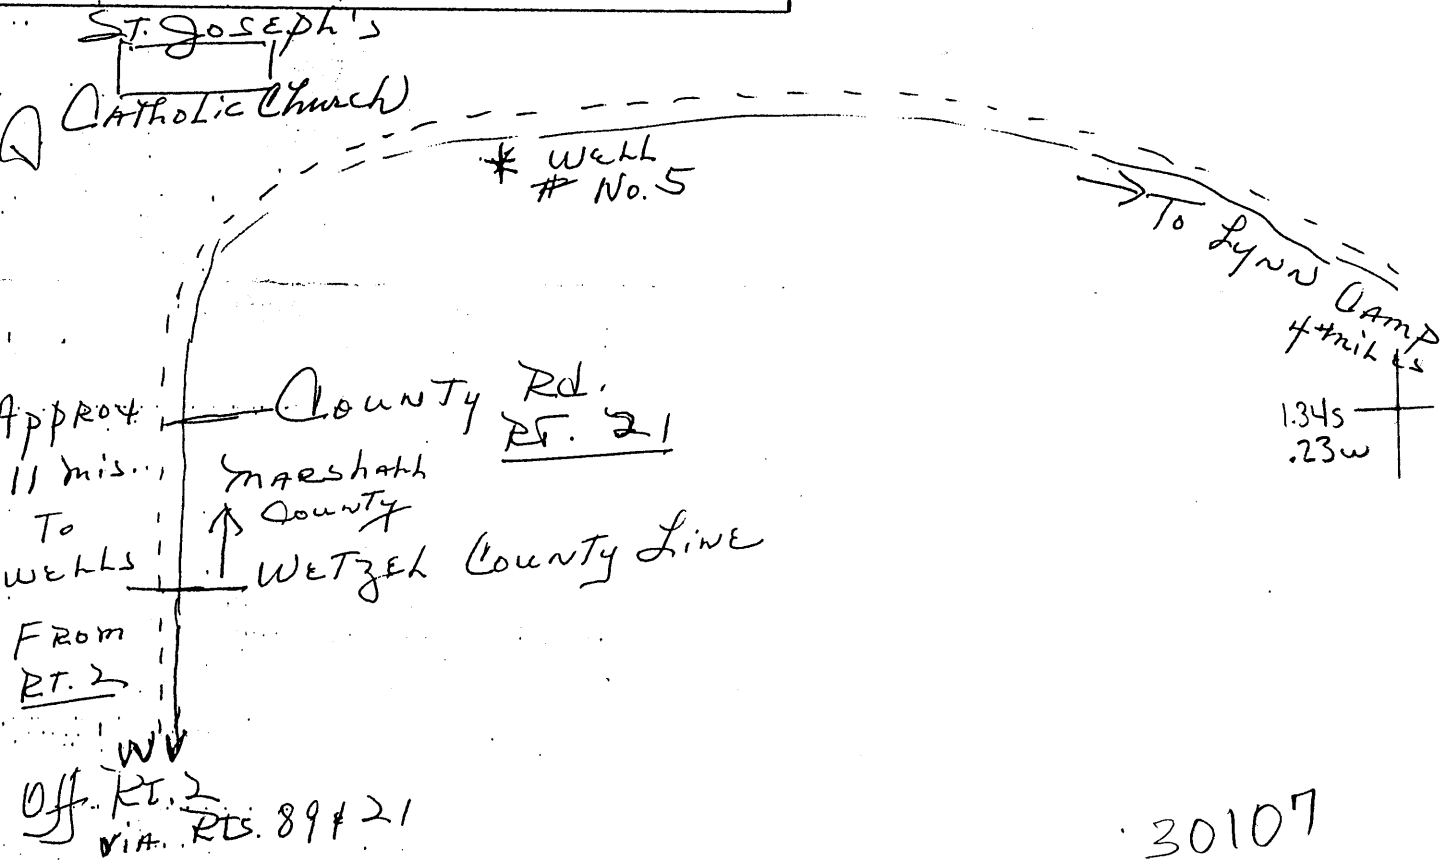 St. Joseph's
Catholic Church
* Well
# No. 5
To Lynn Camp
4 miles
1.34s
.23w
County Rd.
RT. 21
Approx
11 mis.
To
Wells
From
RT. 2
Marshall
County
Wetzel County Line
W
Off RT. 2
via. RTS. 89 & 21
30107